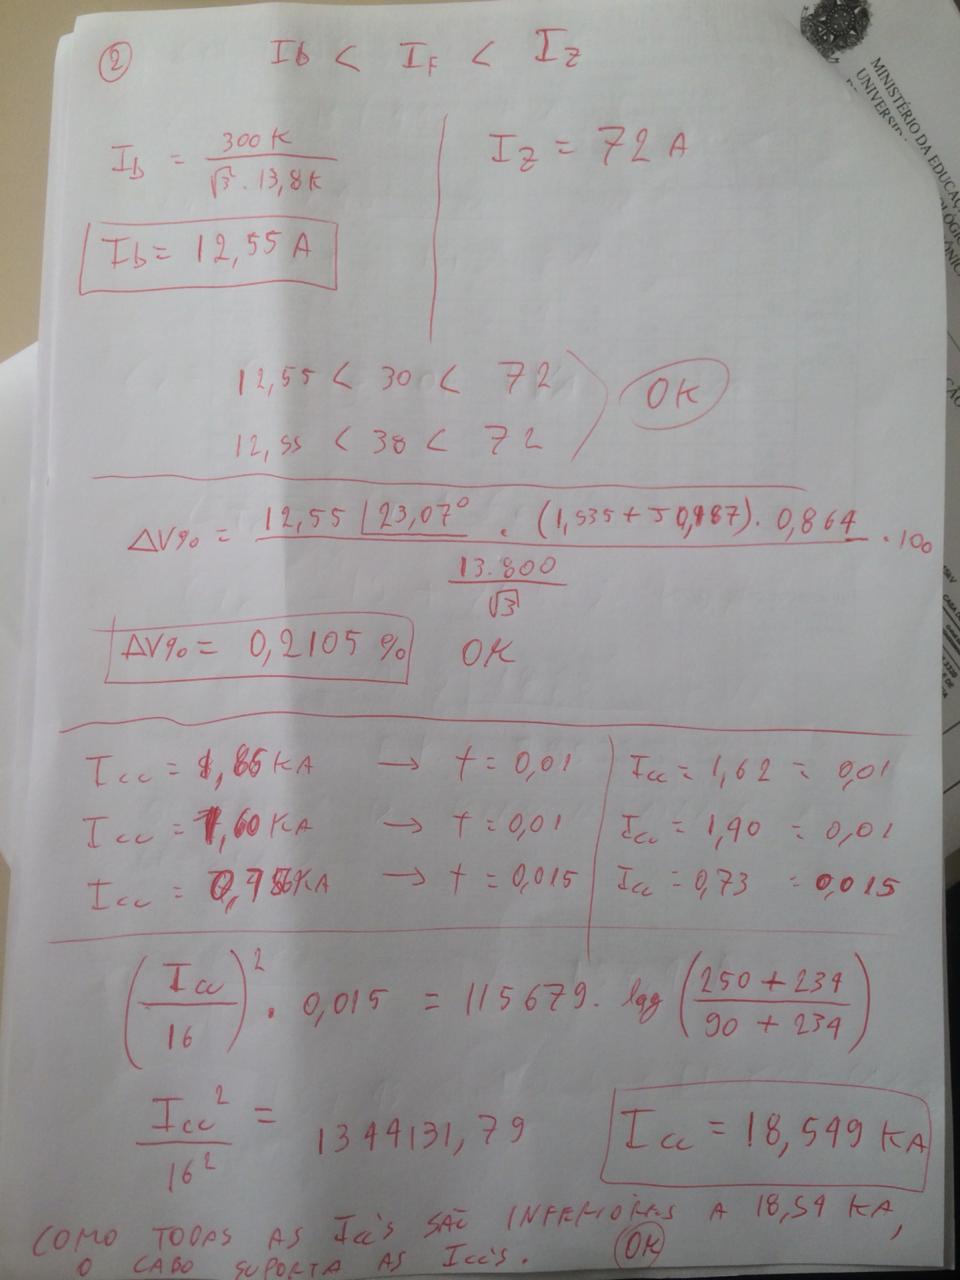 ② Ib < IF < Iz
Ib = 300 K / √3 . 13,8 K
Iz = 72 A
Ib = 12,55 A
12,55 < 30 < 72
12,55 < 38 < 72
OK
ΔV% = 12,55 ∠23,07° . (1,535 + J 0,187) . 0,864 / (13.800 / √3) . 100
ΔV% = 0,2105 % OK
Icc = 1,86 KA → t = 0,01
Icc = 1,60 KA → t = 0,01
Icc = 0,756 KA → t = 0,015
Icc = 1,62 = 0,01
Icc = 1,90 = 0,01
Icc = 0,73 = 0,015
(Icc / 16)² . 0,015 = 115679. log (250 + 234 / 90 + 234)
Icc² / 16² = 1344131,79
Icc = 18,549 KA
COMO TODAS AS Icc's SÃO INFERIORES A 18,54 KA,
O CABO SUPORTA AS Icc's. OK
MINISTÉRIO DA EDUCAÇ